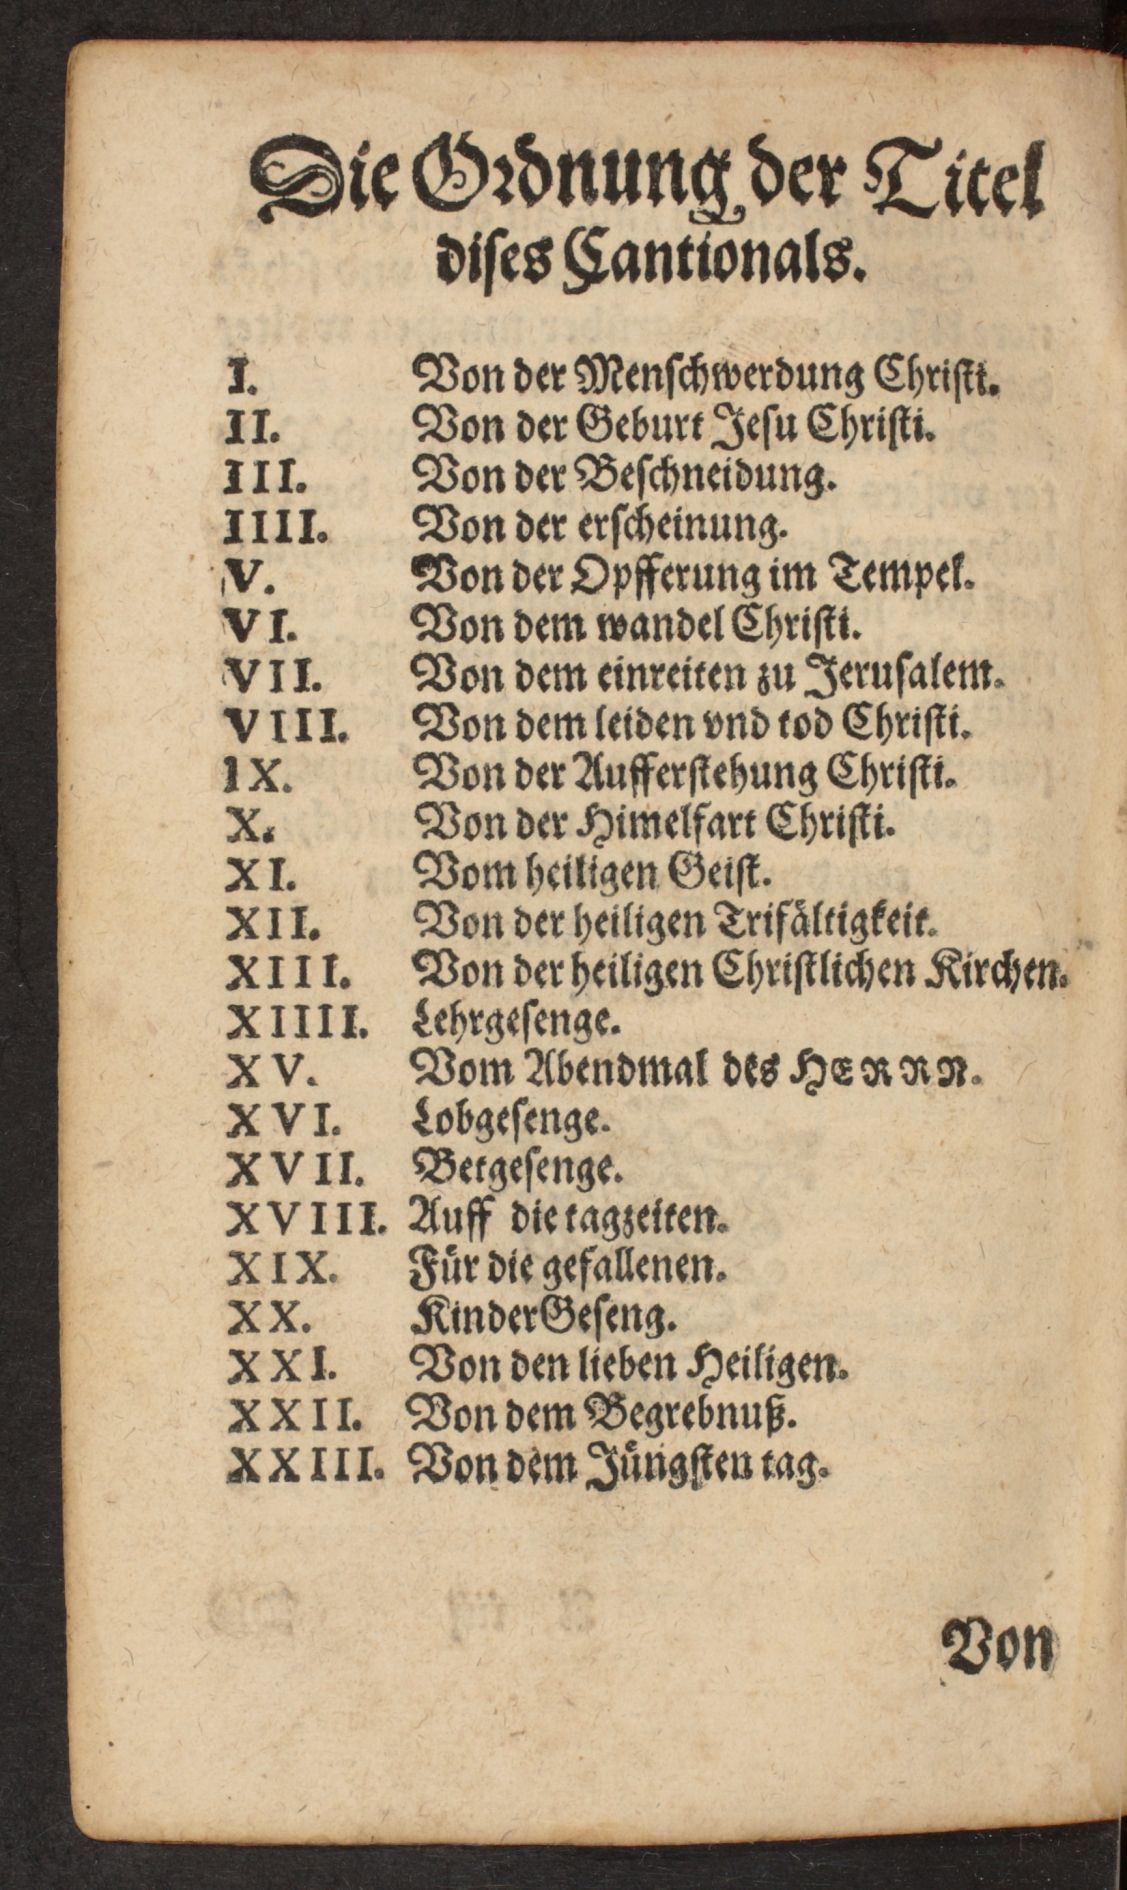 Die Ordnung der Titel
dises Cantionals.
I. Von der Menschwerdung Christi.
II. Von der Geburt Jesu Christi.
III. Von der Beschneidung.
IIII. Von der erscheinung.
V. Von der Opfferung im Tempel.
VI. Von dem wandel Christi.
VII. Von dem einreiten zu Jerusalem.
VIII. Von dem leiden vnd tod Christi.
IX. Von der Aufferstehung Christi.
X. Von der Himelfart Christi.
XI. Vom heiligen Geist.
XII. Von der heiligen Trifältigkeit.
XIII. Von der heiligen Christlichen Kirchen.
XIIII. Lehrgesenge.
XV. Vom Abendmal des HERRN.
XVI. Lobgesenge.
XVII. Betgesenge.
XVIII. Auff die tagzeiten.
XIX. Für die gefallenen.
XX. KinderGeseng.
XXI. Von den lieben Heiligen.
XXII. Von dem Begrebnuß.
XXIII. Von dem Jüngsten tag.
Von